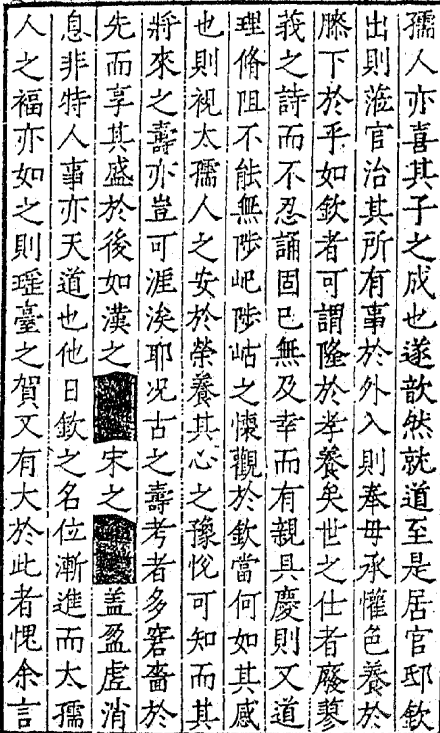 孺人亦喜其子之成也遂歆然就道至是居官邸欽
出則涖官治其所有事於外入則奉母承懽色養於
膝下於乎如欽者可謂隆於孝養矣世之仕者廢蓼
莪之詩而不忍誦固已無及幸而有親具慶則又道
理脩阻不能無陟屺陟岵之懐觀於欽當何如其感
也則視太孺人之安於榮養其心之豫恱可知而其
將來之壽亦豈可涯涘耶况古之壽考者多窘嗇於
先而享其盛於後如漢之宋之盖盈虗消
息非特人事亦天道也他日欽之名位漸進而太孺
人之福亦如之則瑶臺之賀又有大於此者愧余言